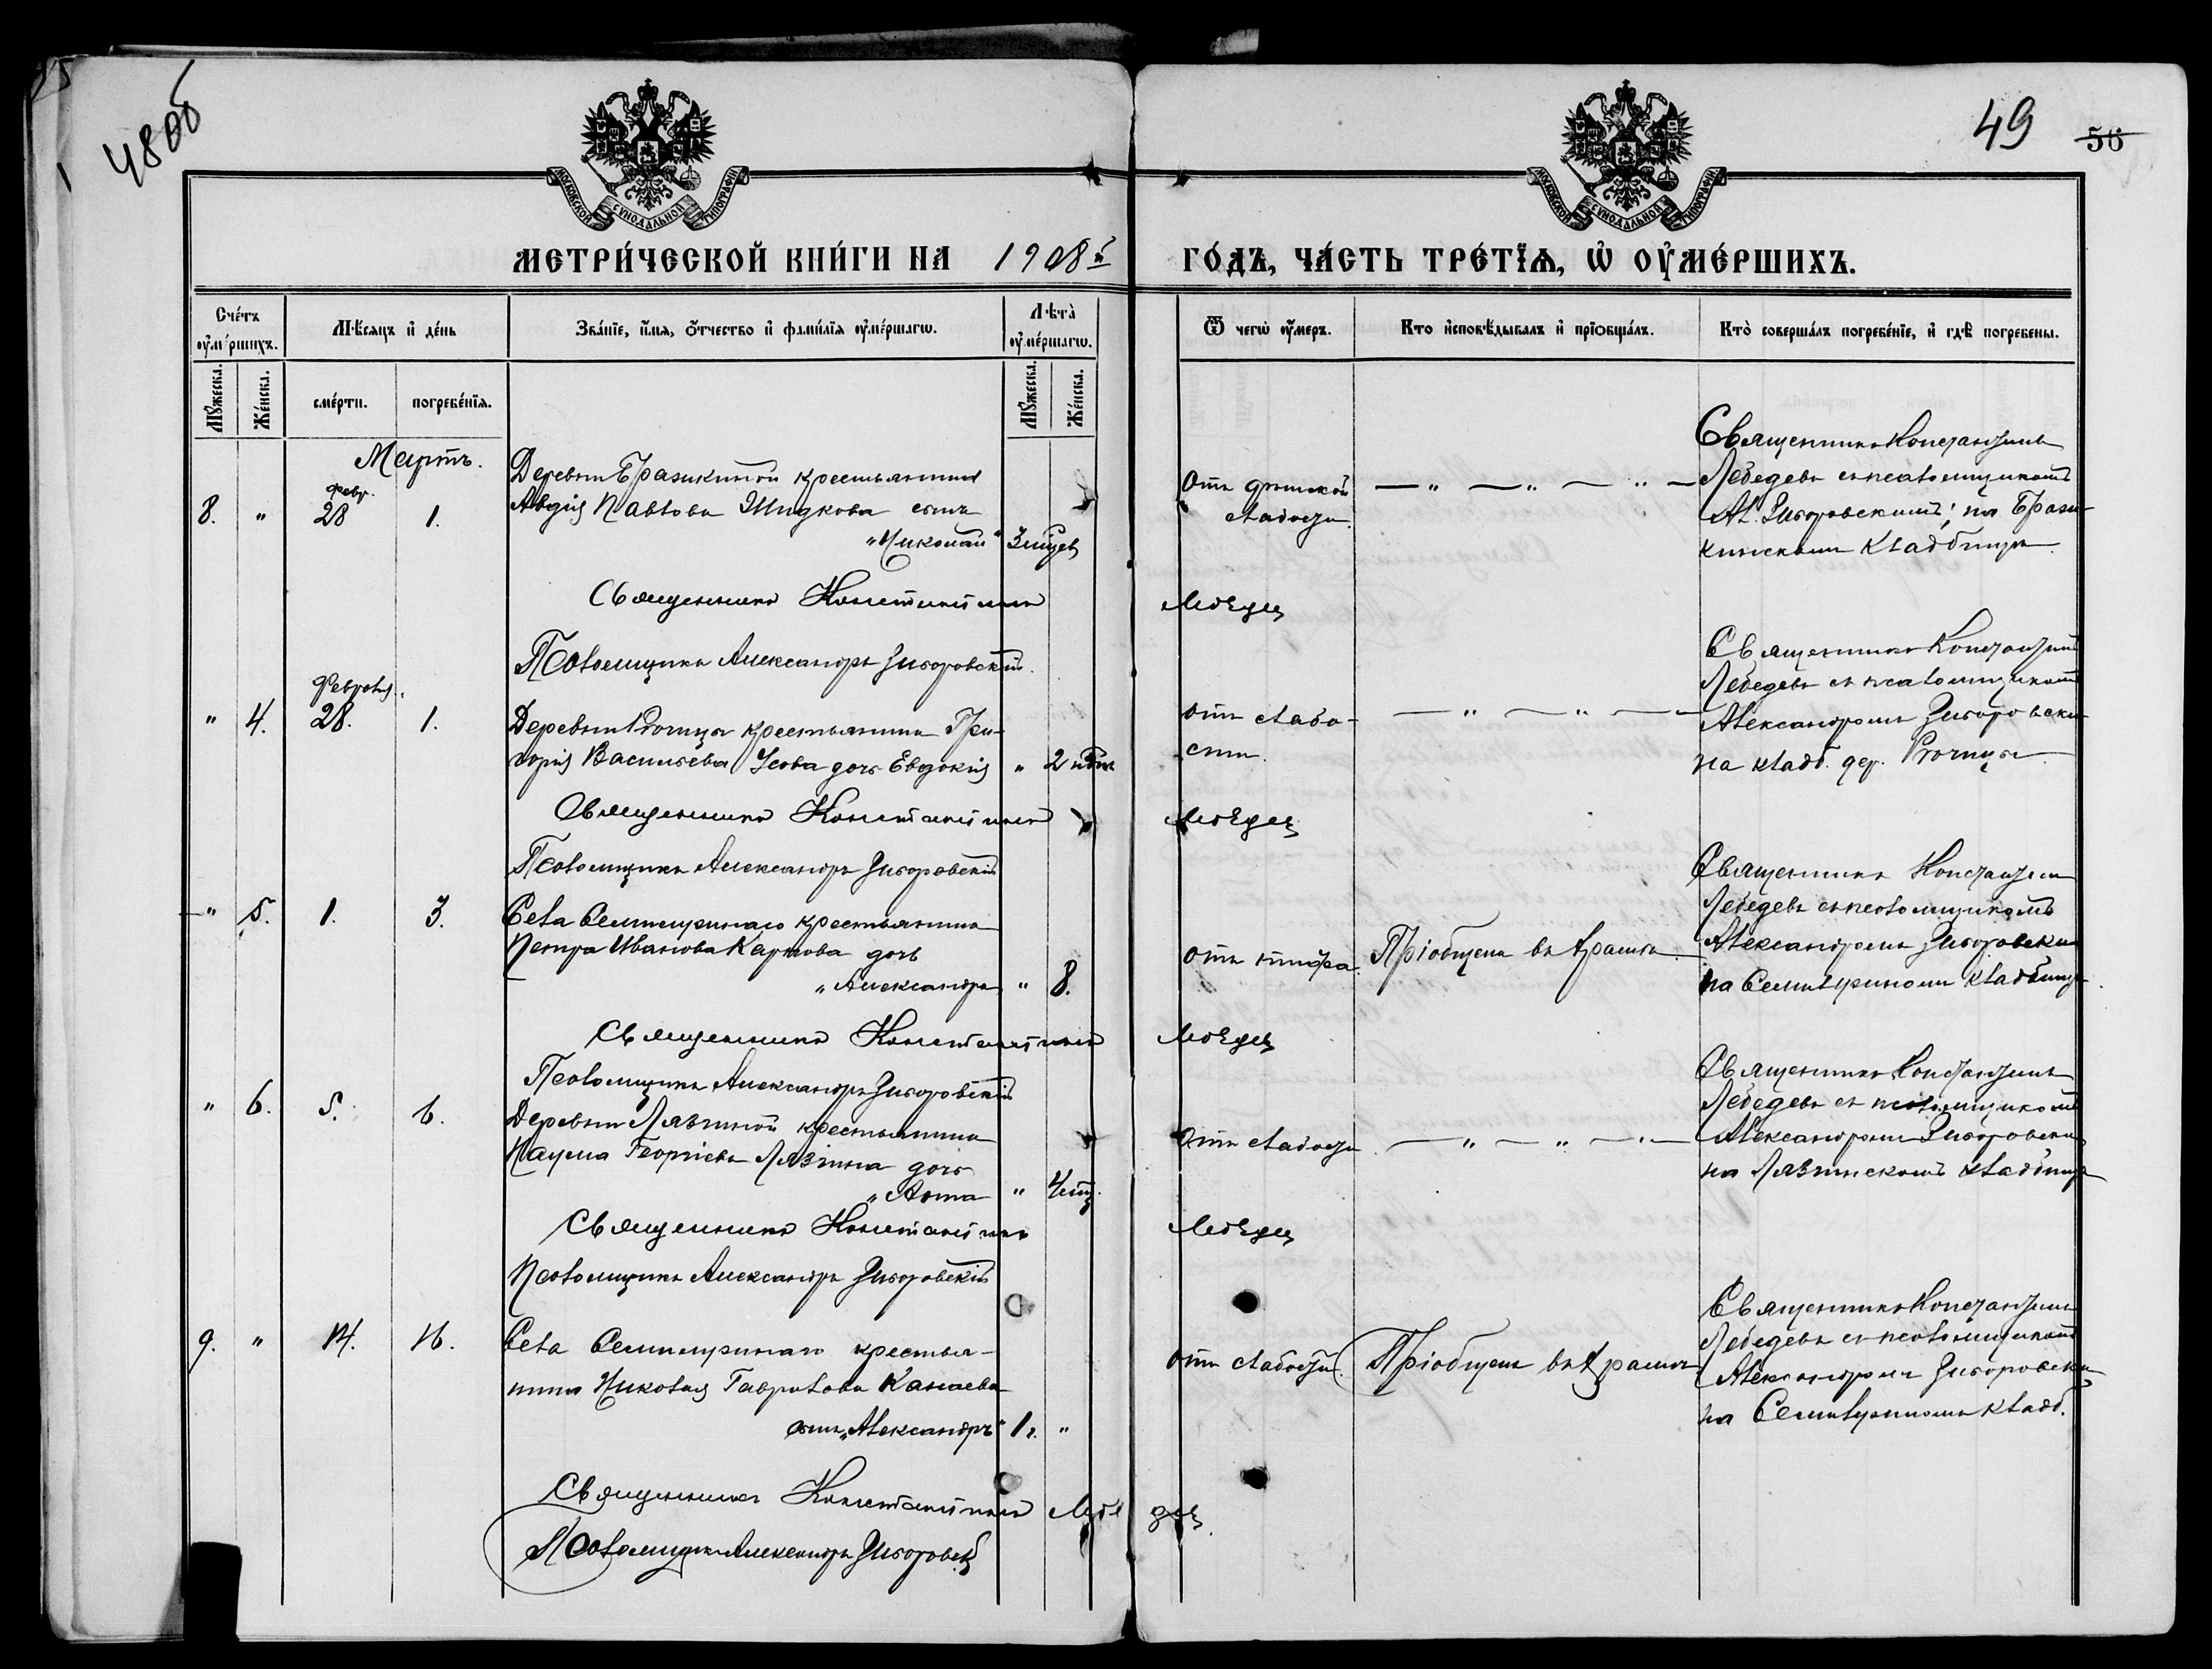 48об
49
56
МОСКОВСКОЙ СѴНОДАЛЬНОЙ ТИПОГРАФІИ
МОСКОВСКОЙ СѴНОДАЛЬНОЙ ТИПОГРАФІИ
МЕТРИ́ЧЕСКОЙ КНИ́ГИ НА 1908й ГО́ДЪ, ЧА́СТЬ ТРЕ́ТЇѦ, Ѡ҆ ОУ҆МЕ́РШИХЪ.
Сче́тъ оу҆ме́ршихъ.
Мѣ́сяцъ и҆ де́нь
Зва́нїе, и҆́мя, ѻ҆́тчество и҆ фами́лїя оу҆ме́ршагѡ.
Лѣта̀ оу҆ме́ршагѡ.
Ѿ чегѡ̀ оу҆́меръ.
Кто̀ и҆сповѣ́дывалъ и҆ прїѡбща́лъ.
Кто̀ соверша́лъ погребе́нїе, и҆ гдѣ̀ погребены.
Мꙋ́жеска.
Же́нска.
сме́рти.
погребе́нїя.
Мꙋ́жеска.
Же́нска.
Мартъ.
8. " Февр. 28 1.
Деревни Бразикиной крестьянина
Авдія Павлова Жидкова сынъ
"Николай" 3 мѣсяц
Отъ дѣтской
слабости.
— " — " — " —
Священникъ Константинъ
Лебедевъ съ псаломщикомъ
Ал. Зиворовскимъ; на Брази-
кинскомъ кладбищѣ.
Священникъ Константинъ Лебедев
Псаломщикъ Александръ Зиворовскій.
" 4. Февраля 28. 1.
Григорія Васильева Усова дочь Евдокія " 2 нѣд.
Отъ слабо-
сти.
— " — " —
Священникъ Константинъ
Лебедевъ съ псаломщикомъ
Александромъ Зиворовским
на кладб. дер.
Священникъ Константинъ Лебедев
Псаломщикъ Александръ Зиворовскій
" 5. 1. 3.
Села крестьянина
Петра Иванова Карпова дочь
"Александра " 8.
Отъ тифа.
Пріобщена въ храмѣ.
Священникъ Константин
Лебедевъ съ псаломщикомъ
Александромъ Зиворовским
на кладбищѣ.
Священникъ Константинъ Лебедев
Псаломщикъ Александръ Зиворовскій
" 6. 5. 6.
Деревни Лявзиной крестьянина
Наума Георгіева Лявзина дочь
"Анна " 4 мѣс.
Отъ слабости.
— " — " — " —
Священникъ Константинъ
Лебедевъ съ псаломщикомъ
Александромъ Зиворовским
на Лявзинскомъ кладбищѣ
Священникъ Константинъ Лебедев
Псаломщикъ Александръ Зиворовскій
9. " 14. 16.
Села крестья-
нина Николая Гаврилова Канаева
сынъ "Александръ" 1 г. "
Отъ слабости.
Пріобщенъ въ храмѣ
Священникъ Константинъ
Лебедевъ съ псаломщикомъ
Александромъ Зиворовским
на кладб.
Священникъ Константинъ Лебедев
Псаломщикъ Александръ Зиворовскій